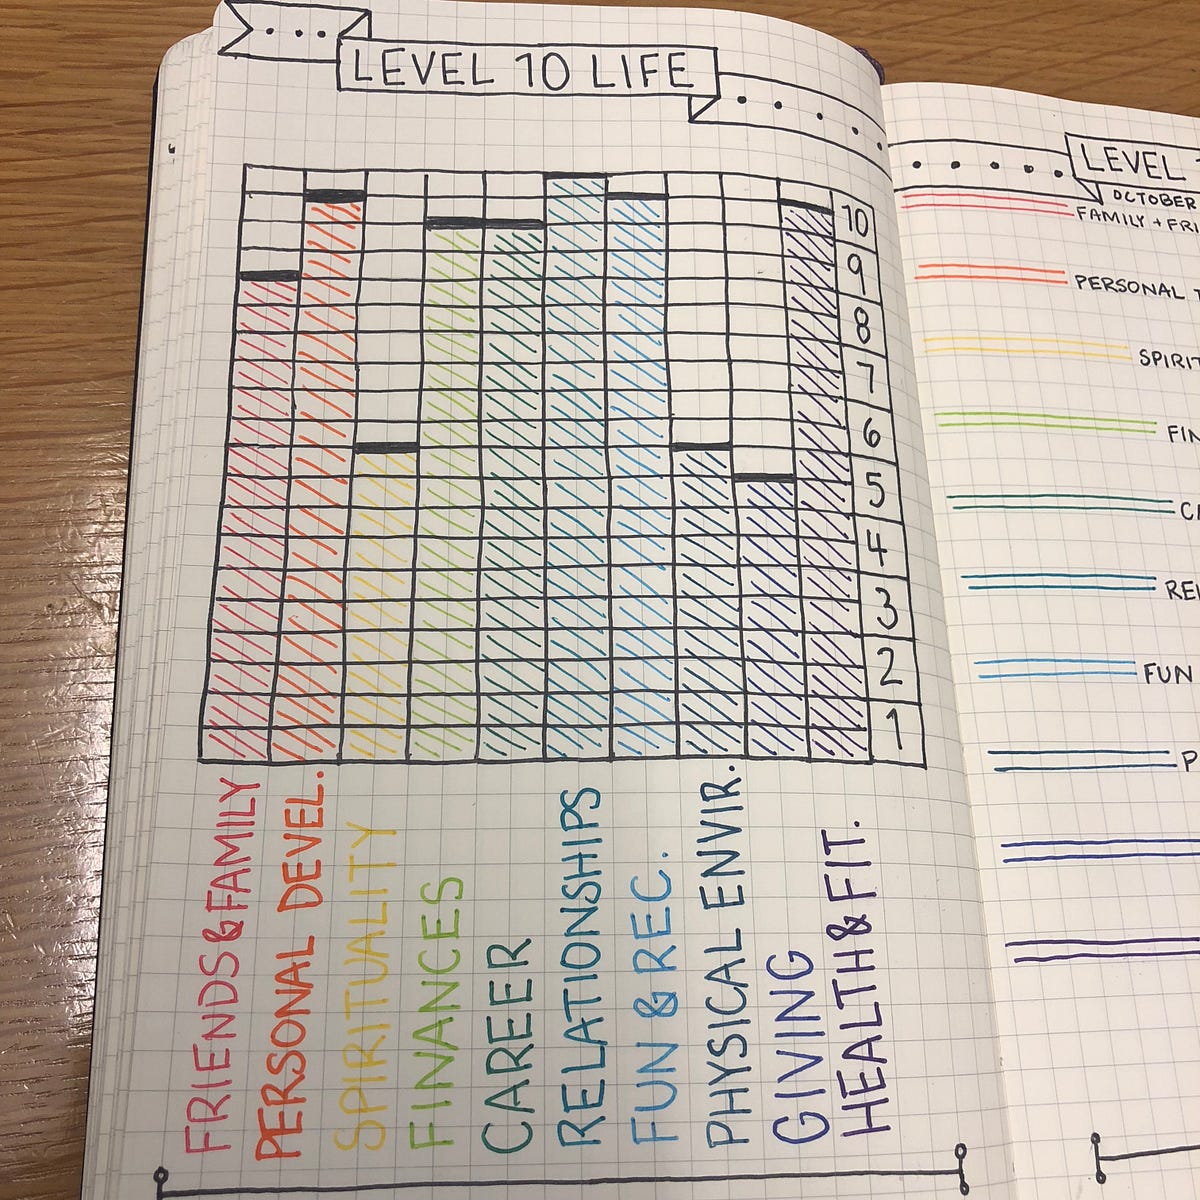 LEVEL 10 LIFE
10
9
8
7
6
5
4
3
2
1
FRIENDS & FAMILY
PERSONAL DEVEL.
SPIRITUALITY
FINANCES
CAREER
RELATIONSHIPS
FUN & REC.
PHYSICAL ENVIR.
GIVING
HEALTH & FIT.
LEVEL
OCTOBER
FAMILY + FRI
PERSONAL
SPIRIT
FIN
CA
REL
FUN
P